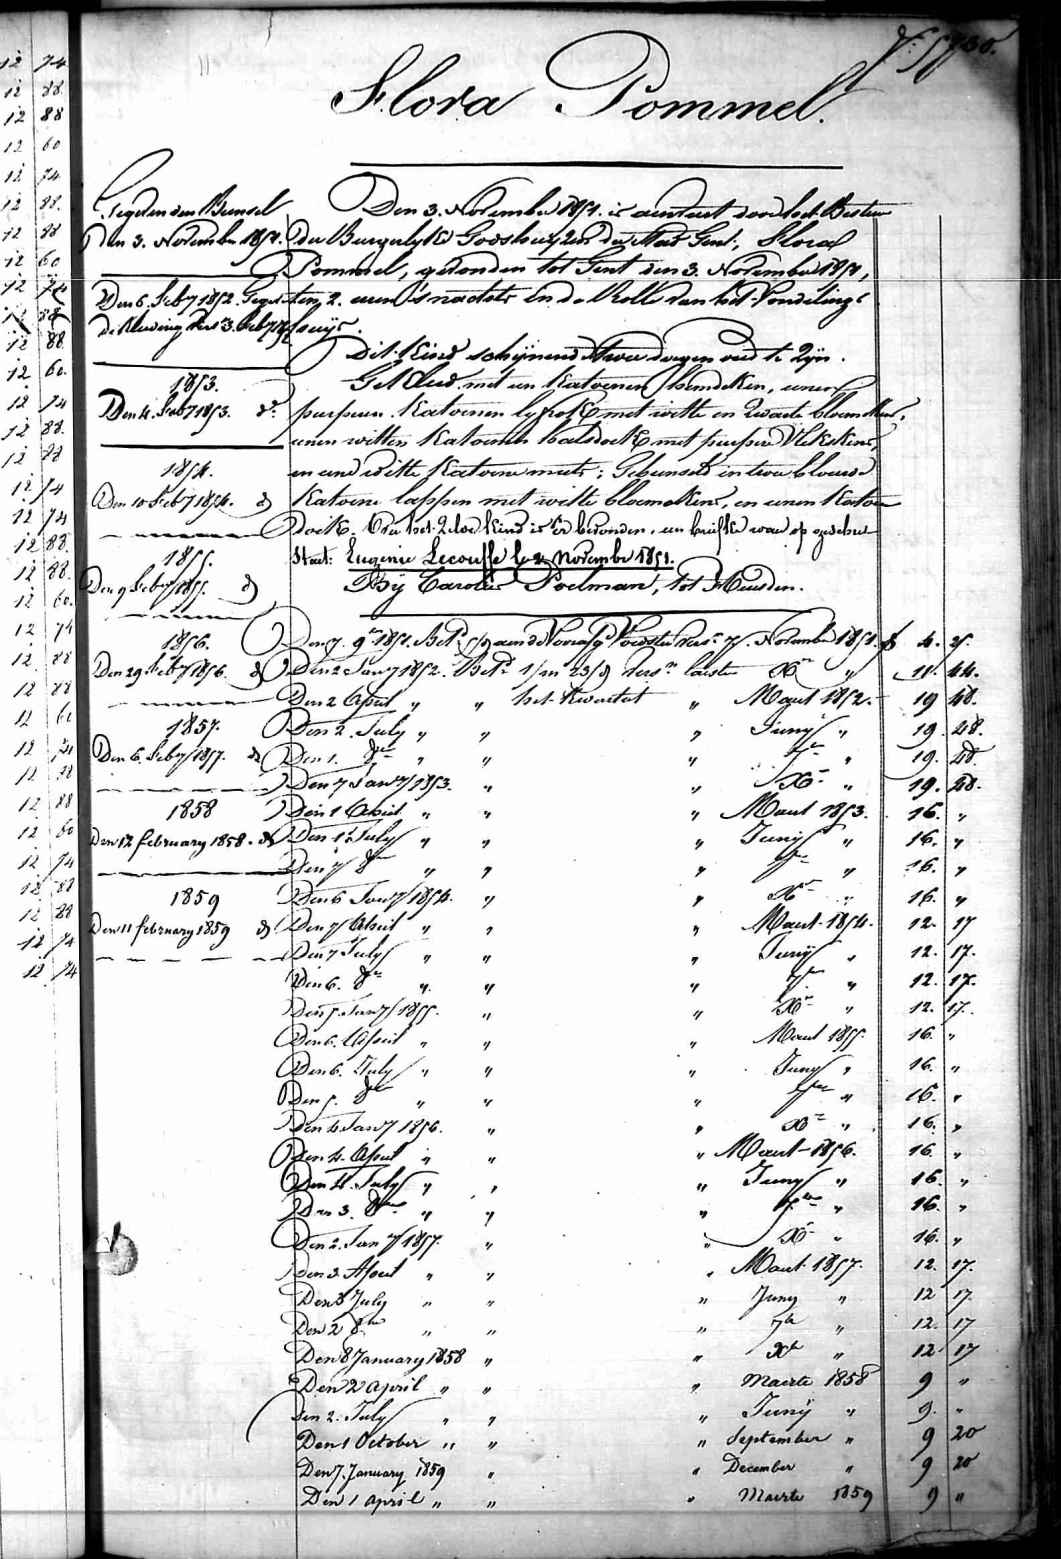 Flora Pommel.
Gegeven den Bunsel
Den 3. November 1851.
Den 6. Feb 1852. Gegev.
de Kleeding
1853.
Den 4. Feb 1853. do
1854.
Den 10 Feb 1854. do
1855.
Den 9 Feb 1855. do
1856.
Den 29 Feb 1856. do
1857.
Den 6. Feb 1857. do
1858
Den 12 february 1858. do
1859
Den 11 february 1859 do
Den 3. November 1851. is aenveert door het Bestier
der Burgerlyke Godshuyzen der Stad Gent, Flora
Pommel, gevonden tot Gent den 3. November 1851,
ten 2. uren 's nachts in de Rolle van het Vondelings
huijs.
Dit Kind schijnend twee dagen oud te zijn.
Gekleed met een Katoenen hemdeken, eenen
purperen Katoenen lyfrok met witte en zwarte bloemekens,
eenen witten Katoenen halsdoek met purpere Vlekskens,
en eene witte Katoene muts: Gebunseld in twee blouwe
Katoene lappen met witte bloemekens, en eenen Katoen
Doek. Bij het zelve Kind is er bevonden, een briefke waer op geschreven
Staet: Eugenie Lecouffe le 2 November 1851.
Bij Carolus Poelman, tot Heusden.
Den 7. 9r 1851. Bet. aen de Voorz. Voedster vers. 7 November 1851. f 4. 25.
Den 2 Jany 1852. Bet. 1/m 23/d vers. laeste Xr " 11. 44.
Den 2 April " " het Kwartael " Maert 1852. 19 48.
Den 2. July " " " Juny " 19. 48.
Den 1. 8er " " " 7er " 19. 48.
Den 7 Jany 1853. " " Xr " 19. 48.
Den 1 April " " " Maert 1853. 16. "
Den 1 July " " " Juny " 16. "
Den 7 8er " " " 7er " 16. "
Den 6 Jany 1854. " " Xr " 16. "
Den 7 April " " " Maert 1854. 12. 17
Den 7 July " " " Juny " 12. 17.
Den 6. 8er " " " 7er " 12. 17.
Den 5. Jany 1855. " " Xr " 12. 17.
Den 6. April " " " Maert 1855. 16. "
Den 6. July " " " Juny " 16. "
Den 5. 8er " " " 7er " 16. "
Den 4 Jany 1856. " " Xr " 16. "
Den 4. April " " " Maert 1856. 16. "
Den 4. July " " " Juny " 16. "
Den 3. 8er " " " 7er " 16. "
Den 2. Jany 1857. " " Xr " 16. "
Den 3. April " " " Maert 1857. 12. 17.
Den 3 July " " " Juny " 12 17.
Den 2 8er " " " 7er " 12. 17
Den 8 January 1858 " " Xr " 12. 17
Den 2 April " " " Maerte 1858 9 "
Den 2. July " " " Juny " 9. "
Den 1 October " " " September " 9 20
Den 7. January 1859 " " December " 9 20
Den 1 April " " " Maerte 1859 9 "